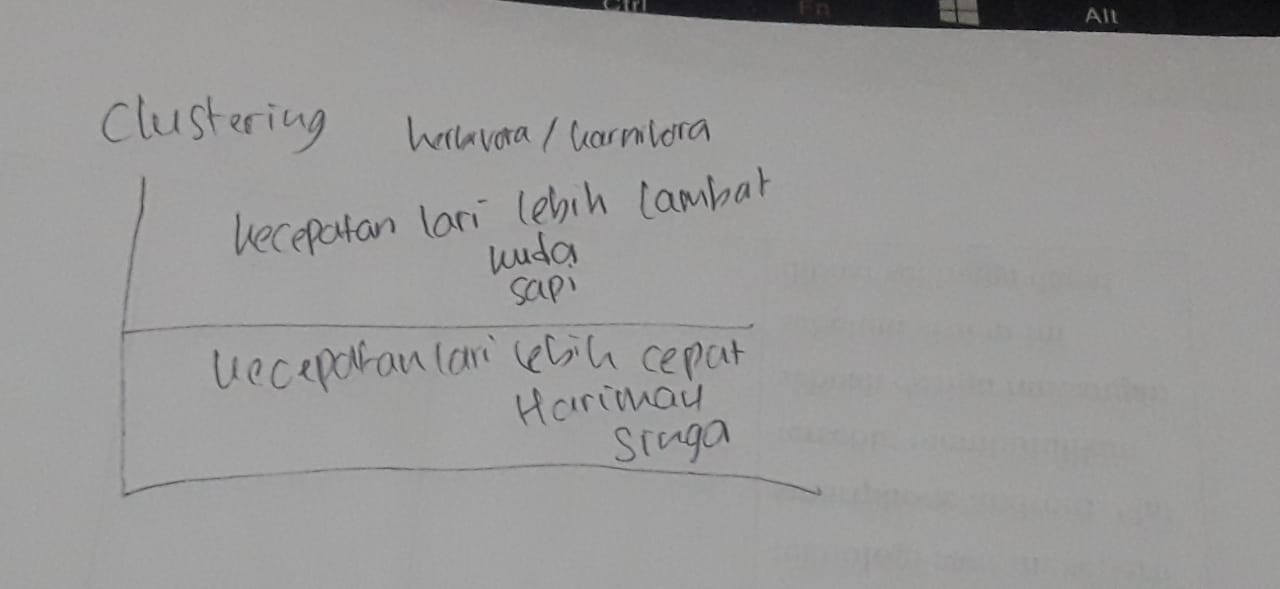 Ctrl Fn Alt
Clustering herbavora / karnivora
kecepatan lari lebih lambat
kuda
sapi
kecepatan lari lebih cepat
Harimau
Singa